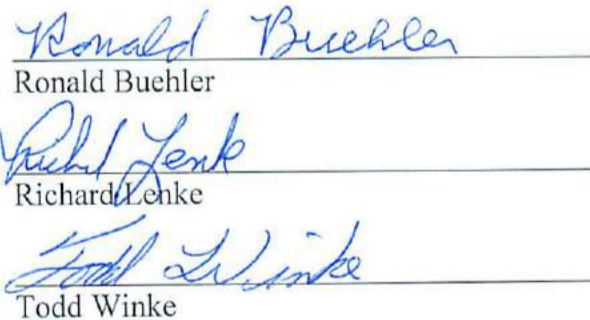 Ronald Buehler
Ronald Buehler
Richd Lenke
Richard Lenke
Todd Winke
Todd Winke